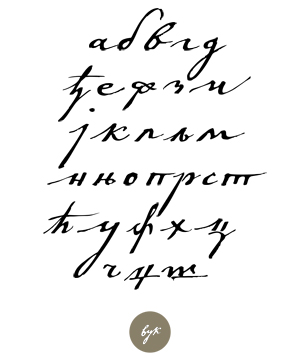 абвгд
ђежзи
јклљм
нњопрст
ћуфхц
чџш
вук